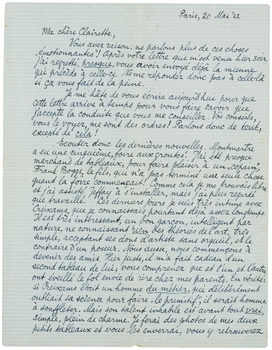 Paris, 20 Mai '22
Ma chère Clairette,
Vous avez raison: ne parlons plus de ces choses
émotionnantes! Après votre lettre qui m'est venu hier soir,
j'ai regretté, presque, vous avoir envoyé déjà la mienne
qui précède à celle-ci. Ne me répondez donc pas à celle-là
si ça vous fait de la peine.
Je me hâte de vous écrire aujourd'hui pour que
cette lettre arrive à temps pour vous faire savoir que
j'accepte la conduite que vous me conseillez. Vos conseils,
vous le voyez, me sont des ordres! Parlons donc de tout,
excepté de cela!
Ecoutez donc les dernières nouvelles. Montmartre
a eu une cinquième foire aux croûtes! J'ai été presque
marchand de tableaux, pour faire plaisir à un copain,
Frank Boggs, le fils, qui n'a pas terminé une seule chose
quand la foire commençait!
et j'ai assisté à s'installer, mais j'ai bien regretté
que travaillé. Les derniers jours je suis très intime avec
Creixams, que je connaissais pourtant déjà assez longtemps.
Il est très intéressant, un bon garçon, intelligent par
nature, ne connaissant rien des théories de l'art, très
simple, acceptant ses dons d'artiste sans orgueil et le
contraire d'un poseur. Nous aussi, nous commençons à
devenir des amis. Hier juste, il m'a fait cadeau d'un
second tableau de lui, vous comprenez que et l'un et l'autre
ont éveillé l'envie de rire chez mes parents. En vérité
si Creixams était un homme du métier, qui délibérément
oubliait sa science pour faire le primitif, il serait homme
à souffleter. Mais son talent est avant tout vrai,
simple, plein de charme. Je ferai des photos de mes deux
petits tableaux et vous les enverrai, vous y retrouverez